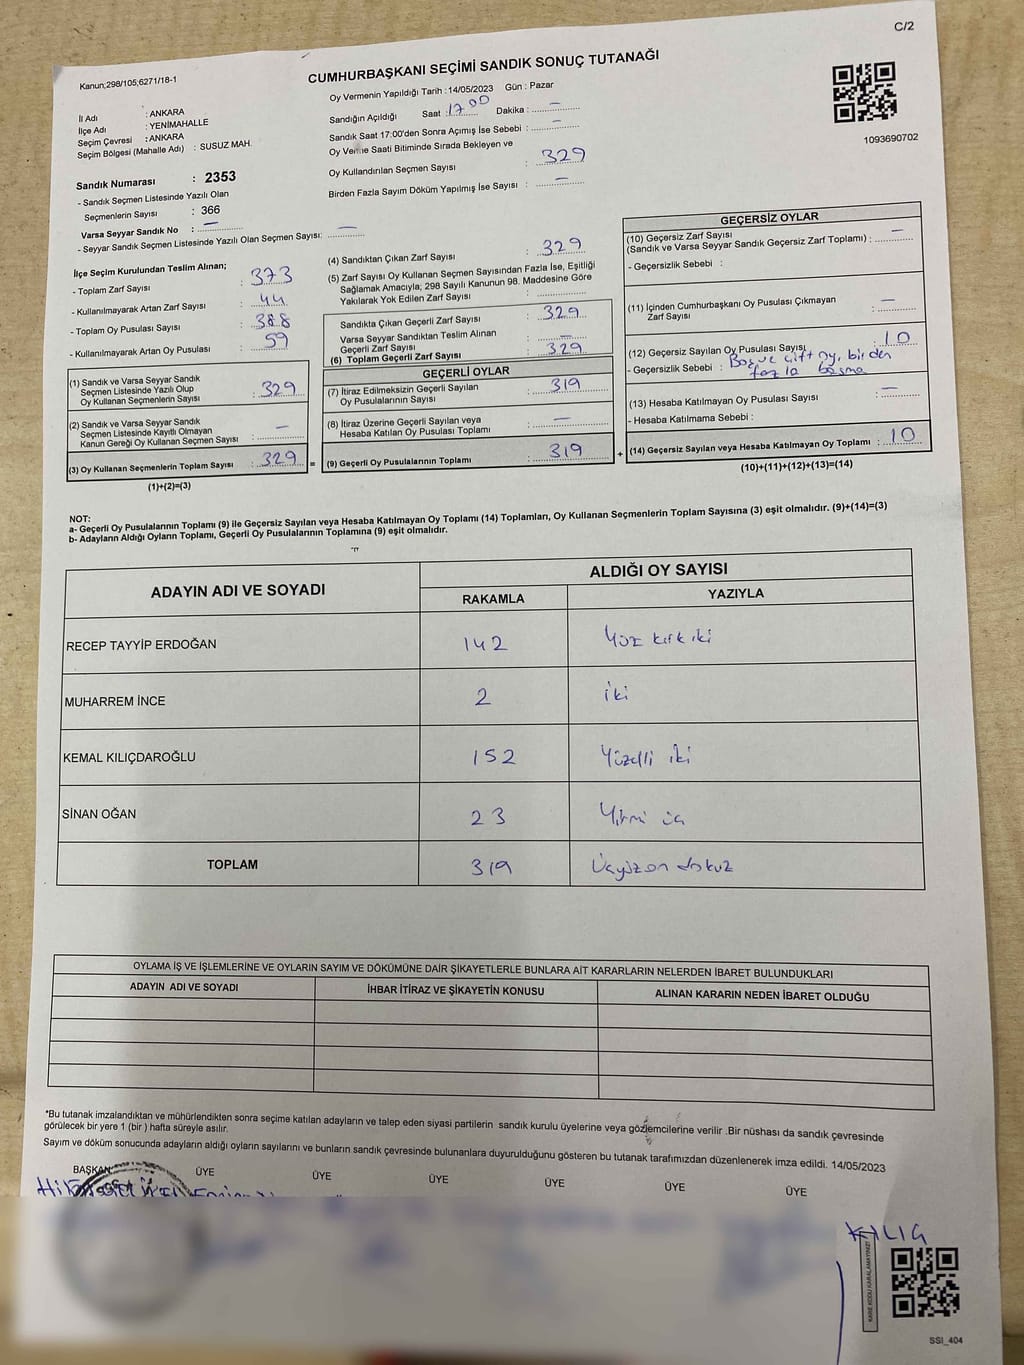 C/2
Kanun;298/105;6271/18-1
CUMHURBAŞKANI SEÇİMİ SANDIK SONUÇ TUTANAĞI
1093690702
İl Adı : ANKARA
İlçe Adı : YENİMAHALLE
Seçim Çevresi : ANKARA
Seçim Bölgesi (Mahalle Adı) : SUSUZ MAH.
Sandık Numarası : 2353
- Sandık Seçmen Listesinde Yazılı Olan
Seçmenlerin Sayısı : 366
Varsa Seyyar Sandık No : —
- Seyyar Sandık Seçmen Listesinde Yazılı Olan Seçmen Sayısı: —
Oy Vermenin Yapıldığı Tarih : 14/05/2023 Gün : Pazar
Sandığın Açıldığı Saat : 17 00 Dakika : —
Sandık Saat 17:00'den Sonra Açımış İse Sebebi : —
Oy Verme Saati Bitiminde Sırada Bekleyen ve
Oy Kullandırılan Seçmen Sayısı : 329
Birden Fazla Sayım Döküm Yapılmış İse Sayısı : —
İlçe Seçim Kurulundan Teslim Alınan;
- Toplam Zarf Sayısı : 373
- Kullanılmayarak Artan Zarf Sayısı : 44
- Toplam Oy Pusulası Sayısı : 388
- Kullanılmayarak Artan Oy Pusulası : 59
(1) Sandık ve Varsa Seyyar Sandık
Seçmen Listesinde Yazılı Olup
Oy Kullanan Seçmenlerin Sayısı : 329
(2) Sandık ve Varsa Seyyar Sandık
Seçmen Listesinde Kayıtlı Olmayan
Kanun Gereği Oy Kullanan Seçmen Sayısı : —
(3) Oy Kullanan Seçmenlerin Toplam Sayısı : 329
(1)+(2)=(3)
(4) Sandıktan Çıkan Zarf Sayısı : 329
(5) Zarf Sayısı Oy Kullanan Seçmen Sayısından Fazla İse, Eşitliği
Sağlamak Amacıyla; 298 Sayılı Kanunun 98. Maddesine Göre
Yakılarak Yok Edilen Zarf Sayısı :
Sandıkta Çıkan Geçerli Zarf Sayısı : 329
Varsa Seyyar Sandıktan Teslim Alınan
Geçerli Zarf Sayısı : —
(6) Toplam Geçerli Zarf Sayısı : 329
GEÇERLİ OYLAR
(7) İtiraz Edilmeksizin Geçerli Sayılan
Oy Pusulalarının Sayısı : 319
(8) İtiraz Üzerine Geçerli Sayılan veya
Hesaba Katılan Oy Pusulası Toplamı : —
= (9) Geçerli Oy Pusulalarının Toplamı : 319
GEÇERSİZ OYLAR
(10) Geçersiz Zarf Sayısı
(Sandık ve Varsa Seyyar Sandık Geçersiz Zarf Toplamı) : —
- Geçersizlik Sebebi :
(11) İçinden Cumhurbaşkanı Oy Pusulası Çıkmayan
Zarf Sayısı : —
(12) Geçersiz Sayılan Oy Pusulası Sayısı : 10
- Geçersizlik Sebebi : Boş ve çift oy, birden
fazla basma
(13) Hesaba Katılmayan Oy Pusulası Sayısı : —
- Hesaba Katılmama Sebebi :
+ (14) Geçersiz Sayılan veya Hesaba Katılmayan Oy Toplamı : 10
(10)+(11)+(12)+(13)=(14)
NOT:
a- Geçerli Oy Pusulalarının Toplamı (9) ile Geçersiz Sayılan veya Hesaba Katılmayan Oy Toplamı (14) Toplamları, Oy Kullanan Seçmenlerin Toplam Sayısına (3) eşit olmalıdır. (9)+(14)=(3)
b- Adayların Aldığı Oyların Toplamı, Geçerli Oy Pusulalarının Toplamına (9) eşit olmalıdır.
ADAYIN ADI VE SOYADI ALDIĞI OY SAYISI
RAKAMLA YAZIYLA
RECEP TAYYİP ERDOĞAN 142 Yüz kırk iki
MUHARREM İNCE 2 iki
KEMAL KILIÇDAROĞLU 152 Yüzelli iki
SİNAN OĞAN 23 Yirmi üç
TOPLAM 319 Üçyüzon dokuz
OYLAMA İŞ VE İŞLEMLERİNE VE OYLARIN SAYIM VE DÖKÜMÜNE DAİR ŞİKAYETLERLE BUNLARA AİT KARARLARIN NELERDEN İBARET BULUNDUKLARI
ADAYIN ADI VE SOYADI İHBAR İTİRAZ VE ŞİKAYETİN KONUSU ALINAN KARARIN NEDEN İBARET OLDUĞU
*Bu tutanak imzalandıktan ve mühürlendikten sonra seçime katılan adayların ve talep eden siyasi partilerin sandık kurulu üyelerine veya gözlemcilerine verilir .Bir nüshası da sandık çevresinde
görülecek bir yere 1 (bir ) hafta süreyle asılır.
Sayım ve döküm sonucunda adayların aldığı oyların sayılarını ve bunların sandık çevresinde bulunanlara duyurulduğunu gösteren bu tutanak tarafımızdan düzenlenerek imza edildi. 14/05/2023
BAŞKAN ÜYE ÜYE ÜYE ÜYE ÜYE ÜYE
KARE KODU KARALAMAYINIZ!
SSI_404